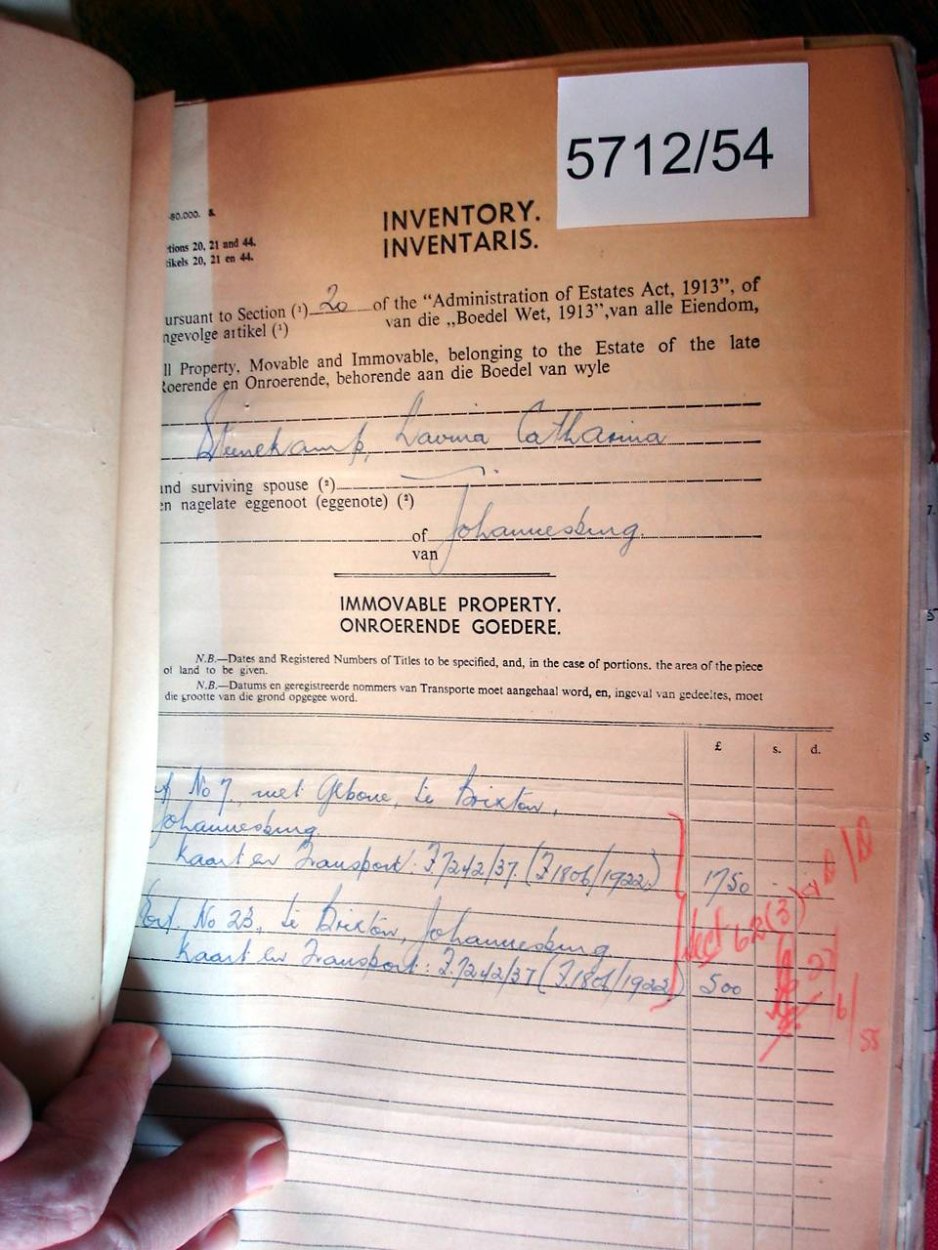 5712/54
60.000. &
INVENTORY.
INVENTARIS.
tions 20, 21 and 44.
tikels 20, 21 en 44.
ursuant to Section (¹) 20 of the “Administration of Estates Act, 1913”, of
ngevolge artikel (¹) van die „Boedel Wet, 1913”,van alle Eiendom,
ll Property, Movable and Immovable, belonging to the Estate of the late
Roerende en Onroerende, behorende aan die Boedel van wyle
Stenekamp, Lavina Catharina
and surviving spouse (²)
en nagelate eggenoot (eggenote) (²)
of Johannesburg
van
IMMOVABLE PROPERTY.
ONROERENDE GOEDERE.
N.B.—Dates and Registered Numbers of Titles to be specified, and, in the case of portions, the area of the piece
of land to be given.
N.B.—Datums en geregistreerde nommers van Transporte moet aangehaal word, en, ingeval van gedeeltes, moet
die grootte van die grond opgegee word.
£ s. d.
No 7, met Geboue, te Brixton,
Johannesburg
Kaart en Transport: F.7242/37 (F.1806/1922) 1750
No 23, te Brixton, Johannesburg
Kaart en Transport: F.7242/37 (F.1806/1922) 500
Sect 62(3)
27
6/
55